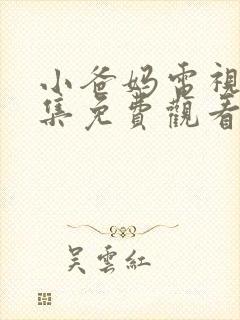 小爸妈電視
集免費觀看
吴雲紅